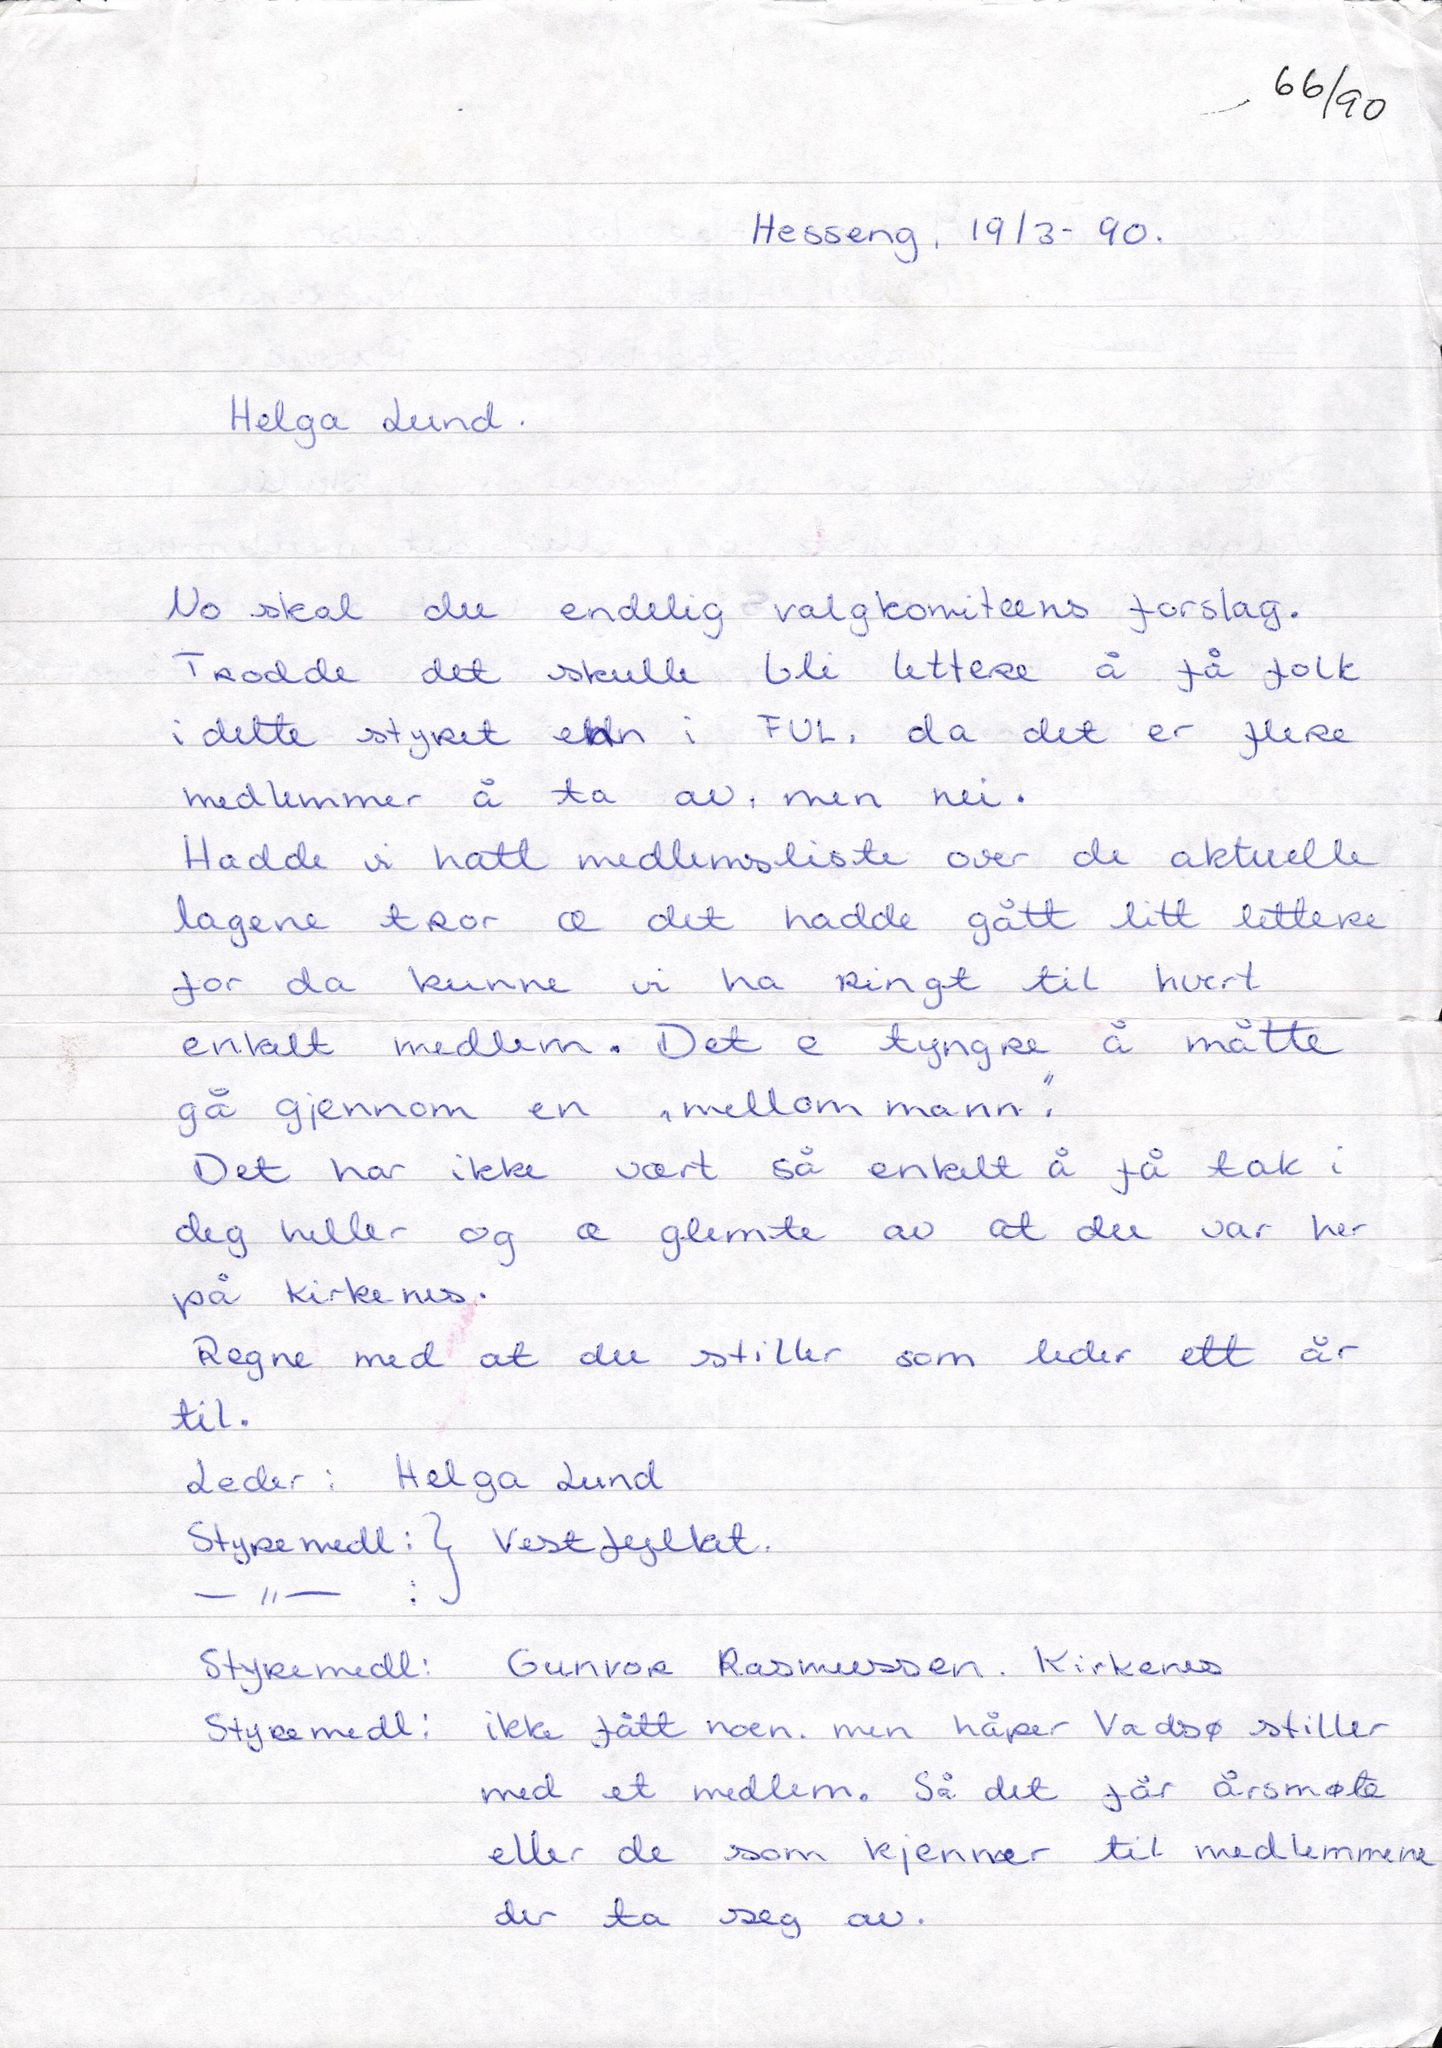 66/90
Hesseng, 19/3-90.
Helga Lund.
No skal du endelig valgkomiteens forslag.
Trodde det skulle bli lettere å få folk
i dette styret enn i FUL, da det er flere
medlemmer å ta av, men nei.
Hadde vi hatt medlemsliste over de aktuelle
lagene tror æ det hadde gått litt lettere
for da kunne vi ha ringt til hvert
enkelt medlem. Det e tyngre å måtte
gå gjennom en „mellommann".
Det har ikke vært så enkelt å få tak i
deg heller og æ glemte av at du var her
på Kirkenes.
Regne med at du stiller som leder ett år
til.
Leder: Helga Lund
Styremedl: } Vestfylket.
— " — :
Styremedl: Gunvor Rasmussen. Kirkenes
Styremedl: ikke fått noen. men håper Vadsø stiller
med et medlem. Så det får årsmøte
eller de som kjenner til medlemmene
der ta seg av.